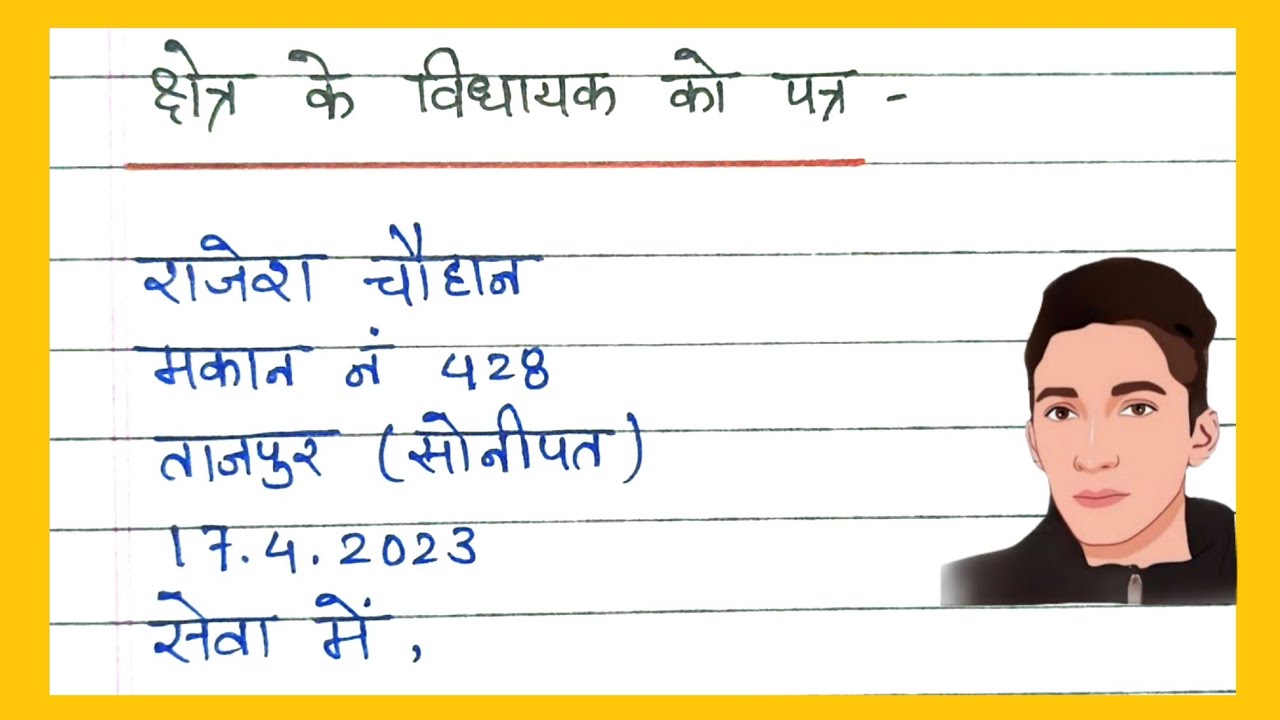 क्षेत्र के विधायक को पत्र -
राजेश चौहान
मकान नं 428
ताजपुर (सोनीपत)
17.4.2023
सेवा में ,